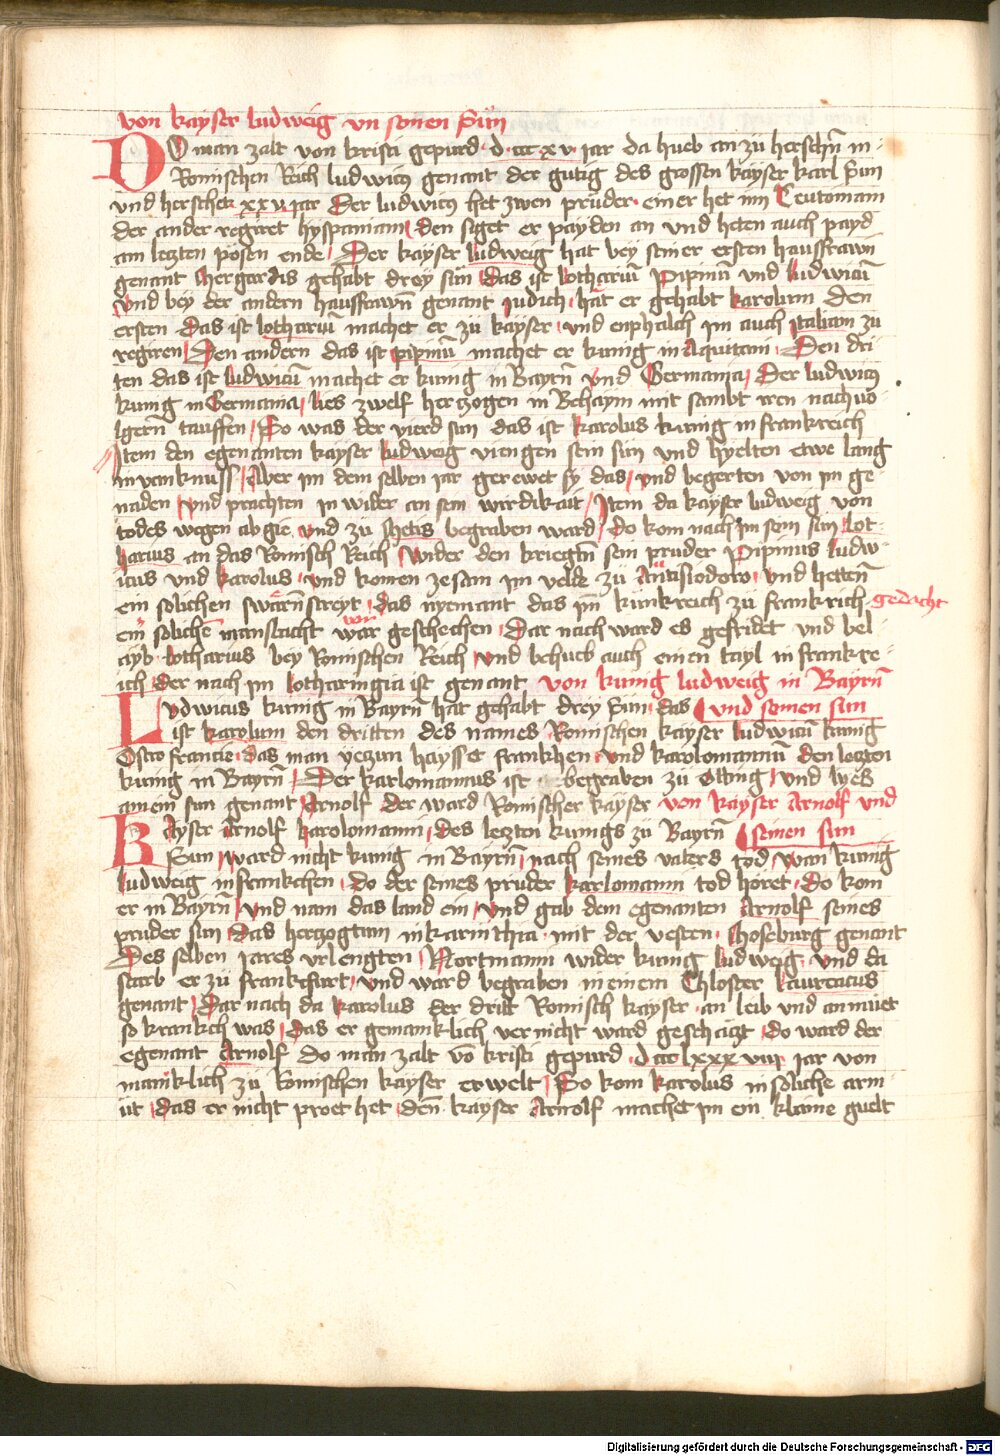 von kayser ludweig vn seinen Sün
DO man zalt von kristi gepurd · d · ccc x v · jar da hueb an zü herschn̄ in ·
Romischen Reich ludwicus genant der gutig des grossen kayser karl Sun
vnd herschet x x v jar Der ludwicus het zwen prüder · einer het inn Teutoniam
der ander regiret hyspaniam den siget er payden an vnd heten auch payd
am lezten pösen ende Der kayser ludweig hat bey seiner ersten hawsfrawn
genant hergardis gehabt drey sün das ist lothariū Pipinū vnd ludwicū
vnd bey der andern hawsfrawn̄ genant judich hat er gehabt karolum den
ersten das ist lothariū machet er zü kayser vnd enphalch jm auch jtaliam zu
regiren Den andern das ist pipinū machet er kunig in Aquitani Den dri
ten das ist ludwicū machet er kunig in Bayrn̄ vnd Germania Der ludwicus
kunig in Germania lies zwelf herczogen in Behaym mit sambt iren nachuo
lgern tauffen So was der vierd sun das ist karolus kunig in frankreich
Item den egenanten kayser ludweig viengen sein sün vnd hyelten etwe lang
in vanknuss Aber jm dem selben jar gerewet sy das vnd begerten von jm ge
naden vnd prachten in wider an sein wirdikait Item da kayser ludweig von
todes wegen ab gie vnd zu Metis begraben ward do kom nach jm sein sun lot-
harius an das Romisch Reich wider den kriegtn̄ sein prüder Pipinus ludw-
icus vnd karolus vnd komen zesam jm velde zü Antisiodoro vnd hetten̄
ein solichen swärn̄ streyt das nyemant das jm künkreich zü frankrich gedacht
ein solichē manslacht wär geschechen Dar nach ward es gefridet vnd bel-
ayb lotharius bey Romischen Reich vnd behueb auch einen tayl in frankre-
ich Der nach jm lotharingia ist genant von kunig ludweig in Bayrn̄
Ludwicus kunig in Bayrn̄ hat gehabt drey Sün das vnd seinen sun
ist karolum den dritten des names Romischen kayser ludwicū kunig
Ostro francie das man yeczun haysset frankhen vnd karolomannū den lezten
kunig in Bayrn̄ Der karlomannus ist begraben zü Otting vnd lyes
ainein sun genant Arnolf der ward Romischer kayser von kayser Arnolf vnd
KAyser Arnolf karolomanni des lezten kunigs zü Bayrn̄ seinen sun
Sun ward nicht kunig in Bayrn̄ nach seines vaters tod wan kunig
ludweig in frankchen do der seines prüder karlomanni tod höret do kom
er in Bayrn̄ vnd nam das land ein vnd gab dem egenanten Arnolf seines
prüder sun das herczogtum in karinthia mit der vesten Moseburg genant
Des selben jares vrlengten Nortmanni wider kunig ludweig vnd da
starb er zü frankfurt vnd ward begraben in einem Chloster laureacus
genant Dar nach da karolus der dritt Romisch kayser an leib vnd an müet
so krankch was das er gemainklich vernicht ward geschäczt Do ward der
egenant Arnolf Do man zalt vō kristi gepurd d ccc lxxx viii jar von
mäniklich zü Römischen kayser erwelt So kom karolus in soliche arm
üt das er nicht proet het den̄ kayser Arnolf machet jm ein klaine guelt
Digitalisierung gefördert durch die Deutsche Forschungsgemeinschaft - DFG